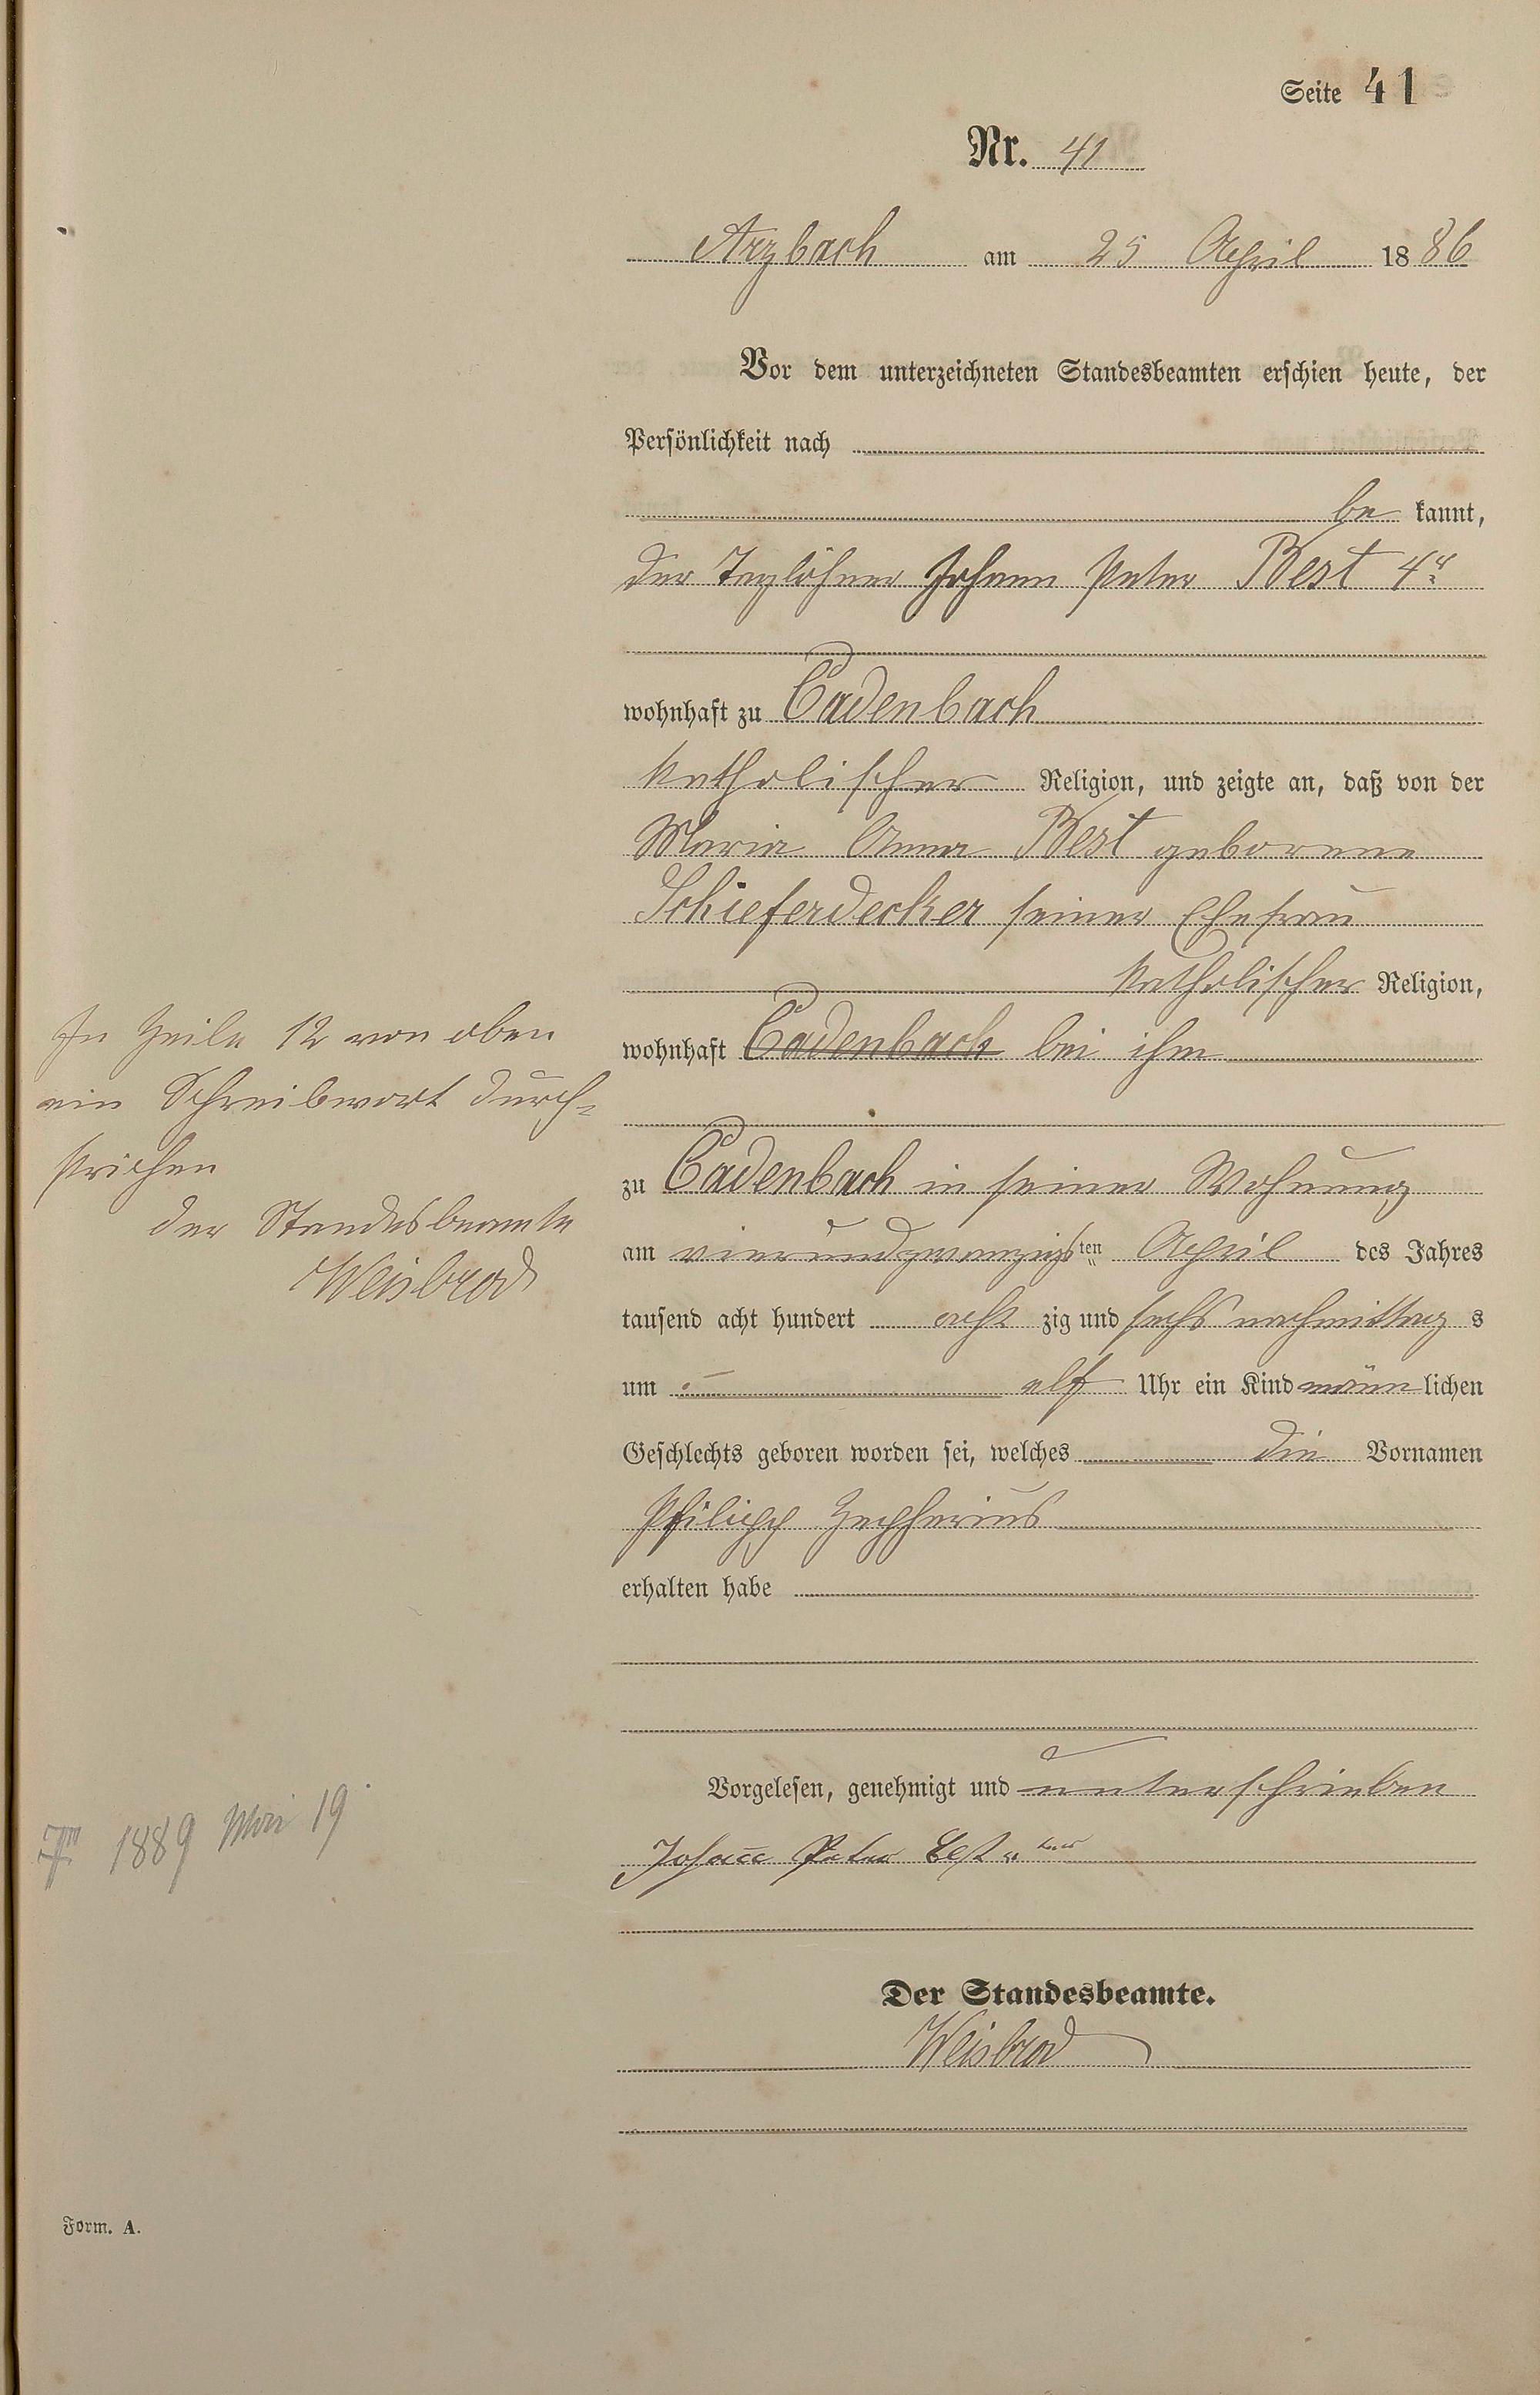 Seite 41
Nr. 41
Arzbach am 25 April 1886
Vor dem unterzeichneten Standesbeamten erschien heute, der
Persönlichkeit nach
be kannt,
der Taglöhner Johann Peter Best 4r
wohnhaft zu Cadenbach
katholischer Religion, und zeigte an, daß von der
Maria Anna Best geborene
Schieferdecker seiner Ehefrau
katholischer Religion,
wohnhaft Cadenbach bei ihm
zu Cadenbach in seiner Wohnung
am vierundzwanzigsten April des Jahres
tausend acht hundert acht zig und sechs nachmittag s
um elf Uhr ein Kind männlichen
Geschlechts geboren worden sei, welches die Vornamen
Philipp Zepherinus
erhalten habe
Vorgelesen, genehmigt und unterschrieben
Johann Peter Best
Der Standesbeamte.
Weisbrod
In Zeile 12 von oben
ein Schreibwort durch=
strichen
der Standesbeamte
Weisbrod
1889 Mai 19
Form. A.